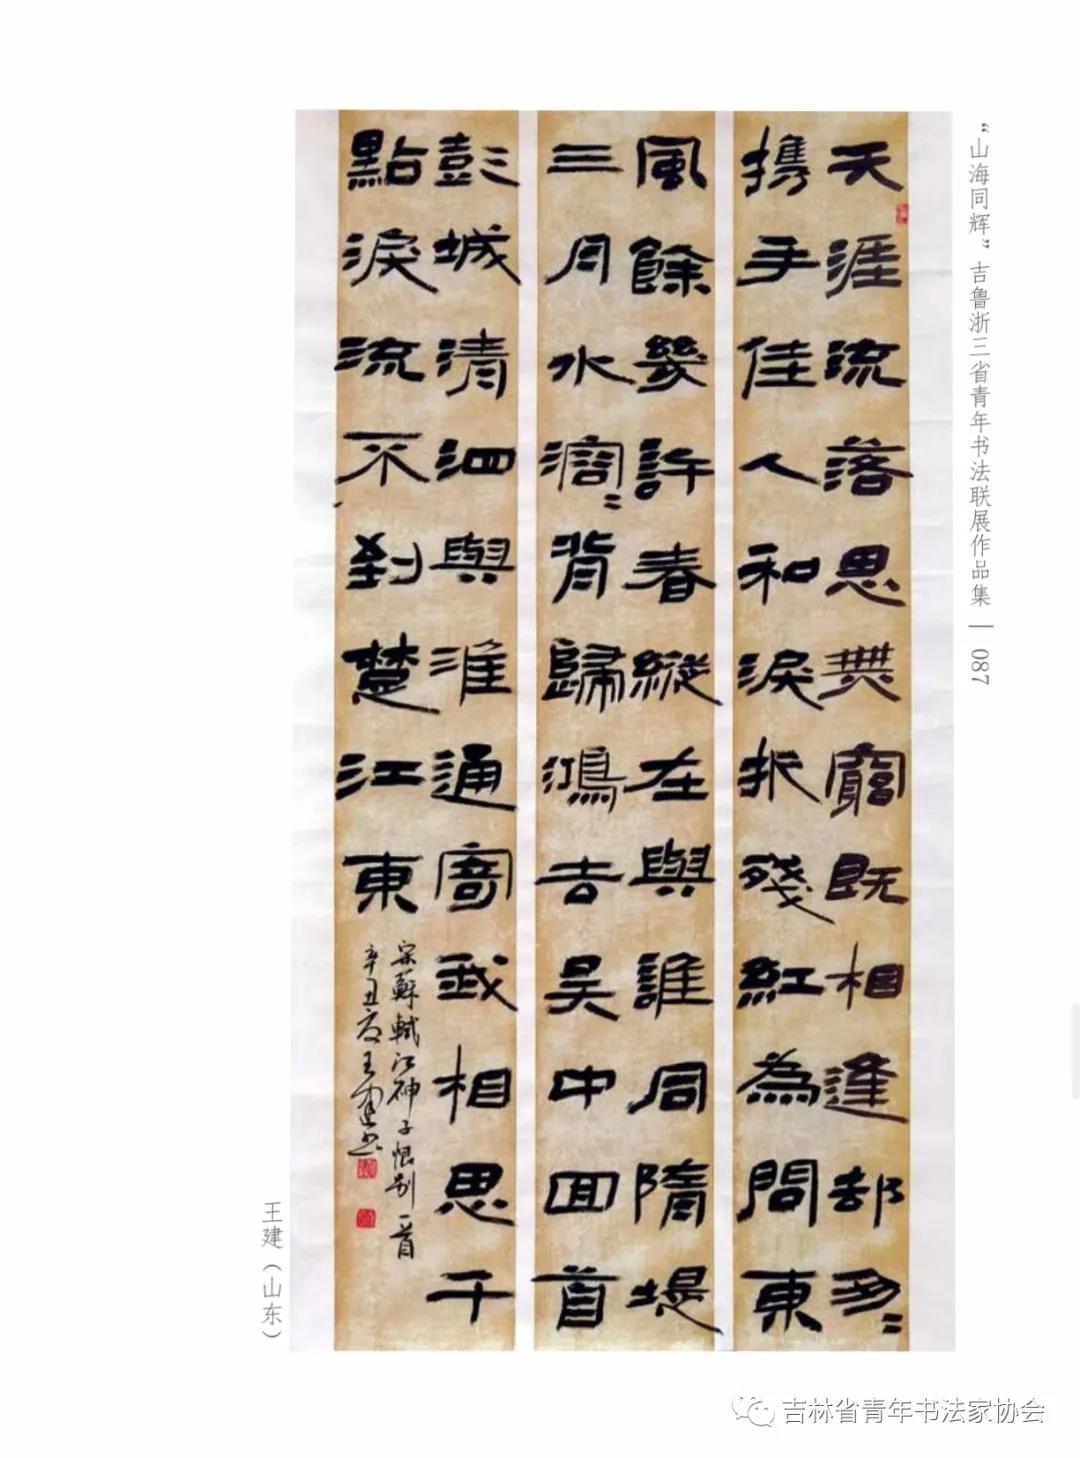 “山海同辉”吉鲁浙三省青年书法联展作品集 | 087
天涯流落思無窮既相逢却匆〻
携手佳人和淚折殘紅為問東
風餘幾許春縱在與誰同隋堤
三月水溶〻背歸鴻去吳中回首
彭城清泗與淮通寄我相思千
點淚流不到楚江東
宋蘇軾江神子恨别一首
辛丑夏王建书
王建（山东）
吉林省青年书法家协会